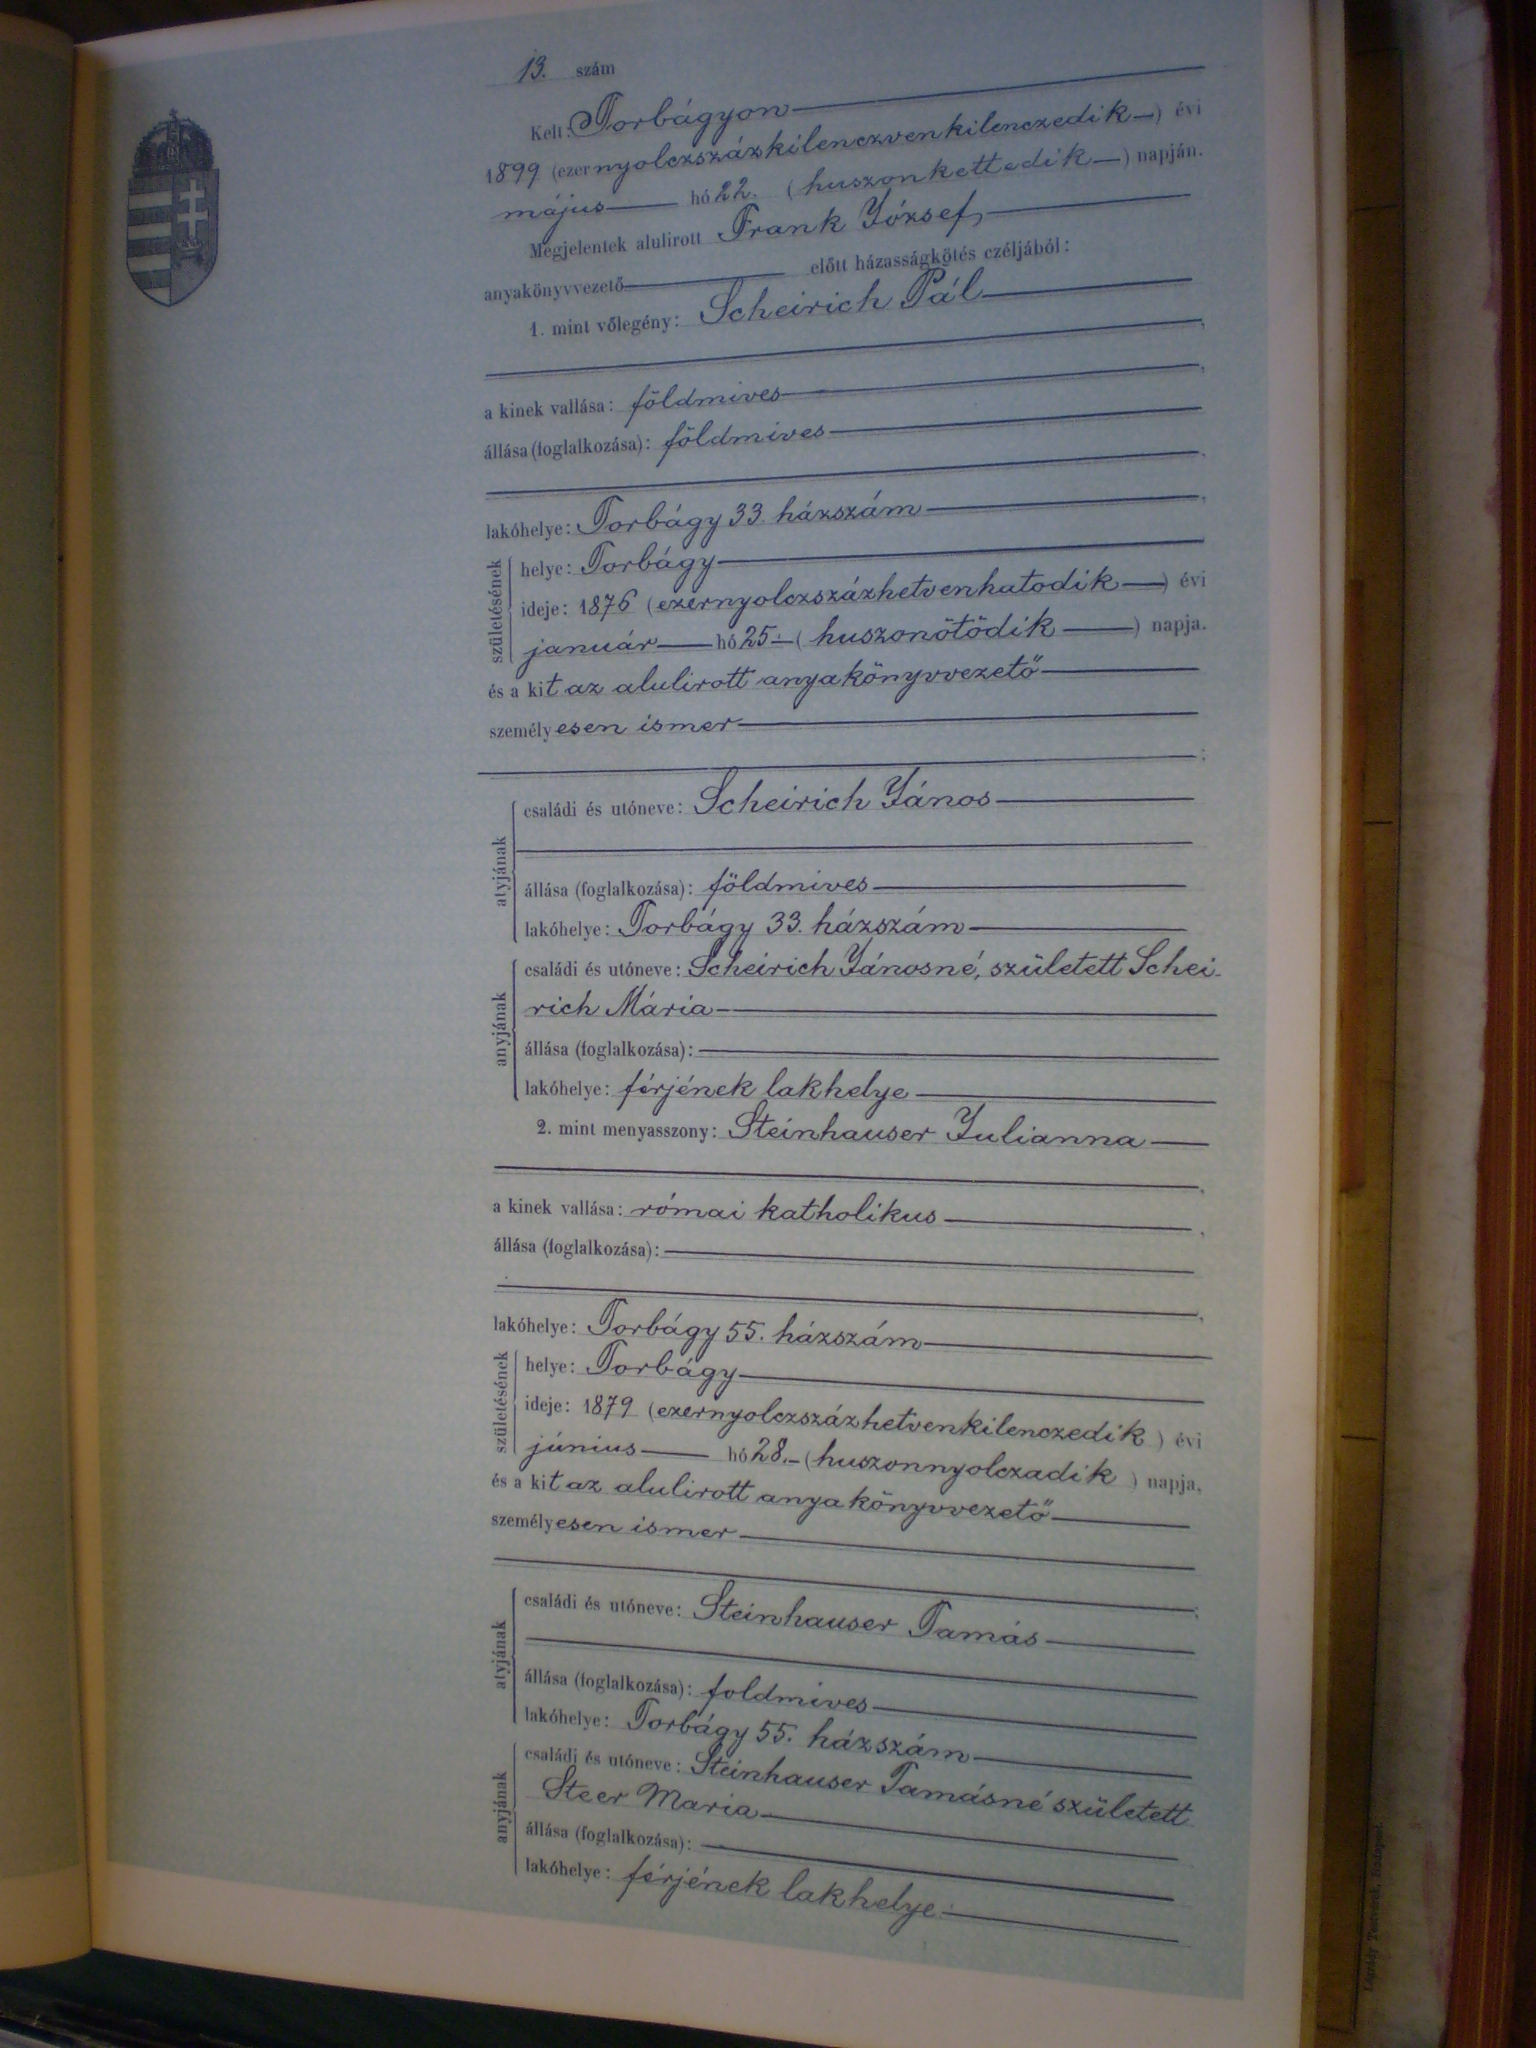 13. szám
Kelt: Torbágyon
1899 (ezernyolczszázkilenczvenkilenczedik) évi
május hó 22. (huszonkettedik) napján.
Megjelentek alulirott Frank József,
anyakönyvvezető előtt házasságkötés czéljából:
1. mint vőlegény: Scheirich Pál
,
a kinek vallása: földmives,
állása (foglalkozása): földmives
,
lakóhelye: Torbágy 33. házszám,
születésének
helye: Torbágy
ideje: 1876 (ezernyolczszázhetvenhatodik) évi
január hó 25. (huszonötödik) napja.
és a kit az alulirott anyakönyvvezető
személyesen ismer
;
atyjának
családi és utóneve: Scheirich János
állása (foglalkozása): földmives
lakóhelye: Torbágy 33. házszám
anyjának
családi és utóneve: Scheirich Jánosné, született Schei-
rich Mária
állása (foglalkozása):
lakóhelye: férjének lakhelye
2. mint menyasszony: Steinhauser Julianna
,
a kinek vallása: római katholikus,
állása (foglalkozása):
,
lakóhelye: Torbágy 55. házszám
születésének
helye: Torbágy
ideje: 1879 (ezernyolczszázhetvenkilenczedik) évi
június hó 28. (huszonnyolczadik) napja,
és a kit az alulirott anyakönyvvezető
személyesen ismer
;
atyjának
családi és utóneve: Steinhauser Tamás
állása (foglalkozása): foldmives
lakóhelye: Torbágy 55. házszám
anyjának
családi és utóneve: Steinhauser Tamásné született
Steer Maria
állása (foglalkozása):
lakóhelye: férjének lakhelye